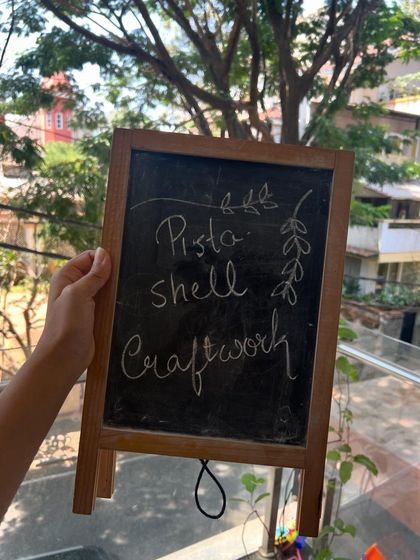 Pista
shell
Craftwork